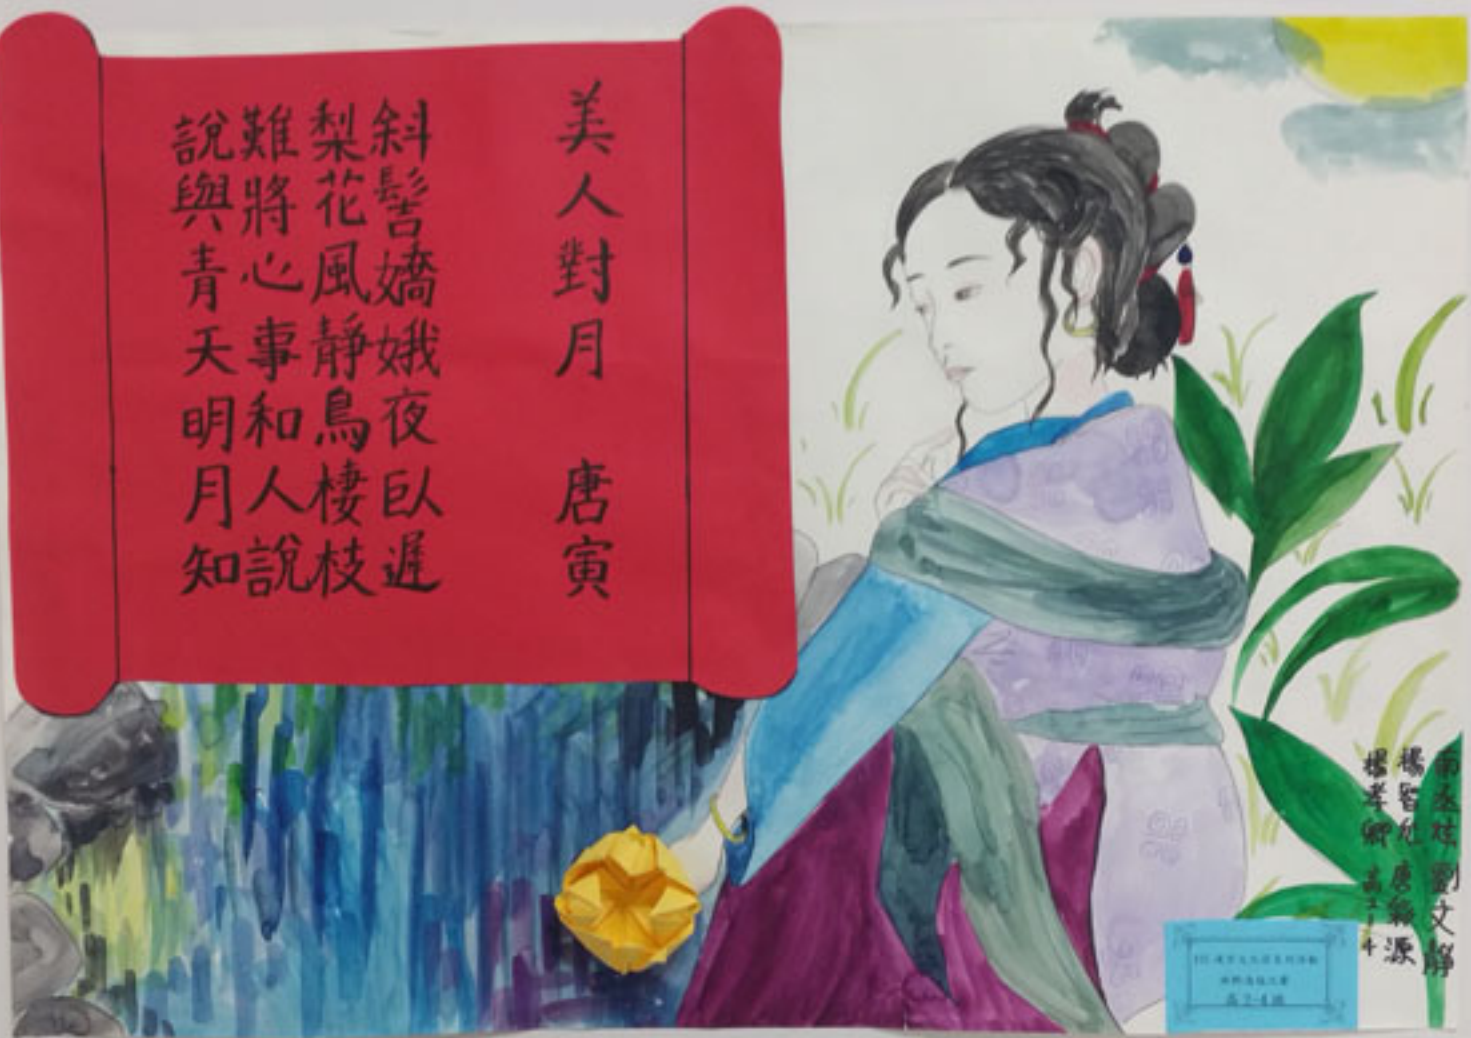 美人對月 唐寅
斜髻嬌娥夜臥遲
梨花風靜鳥棲枝
難將心事和人說
說與青天明月知
劉文靜
楊孝卿 高二-4
高2-4班